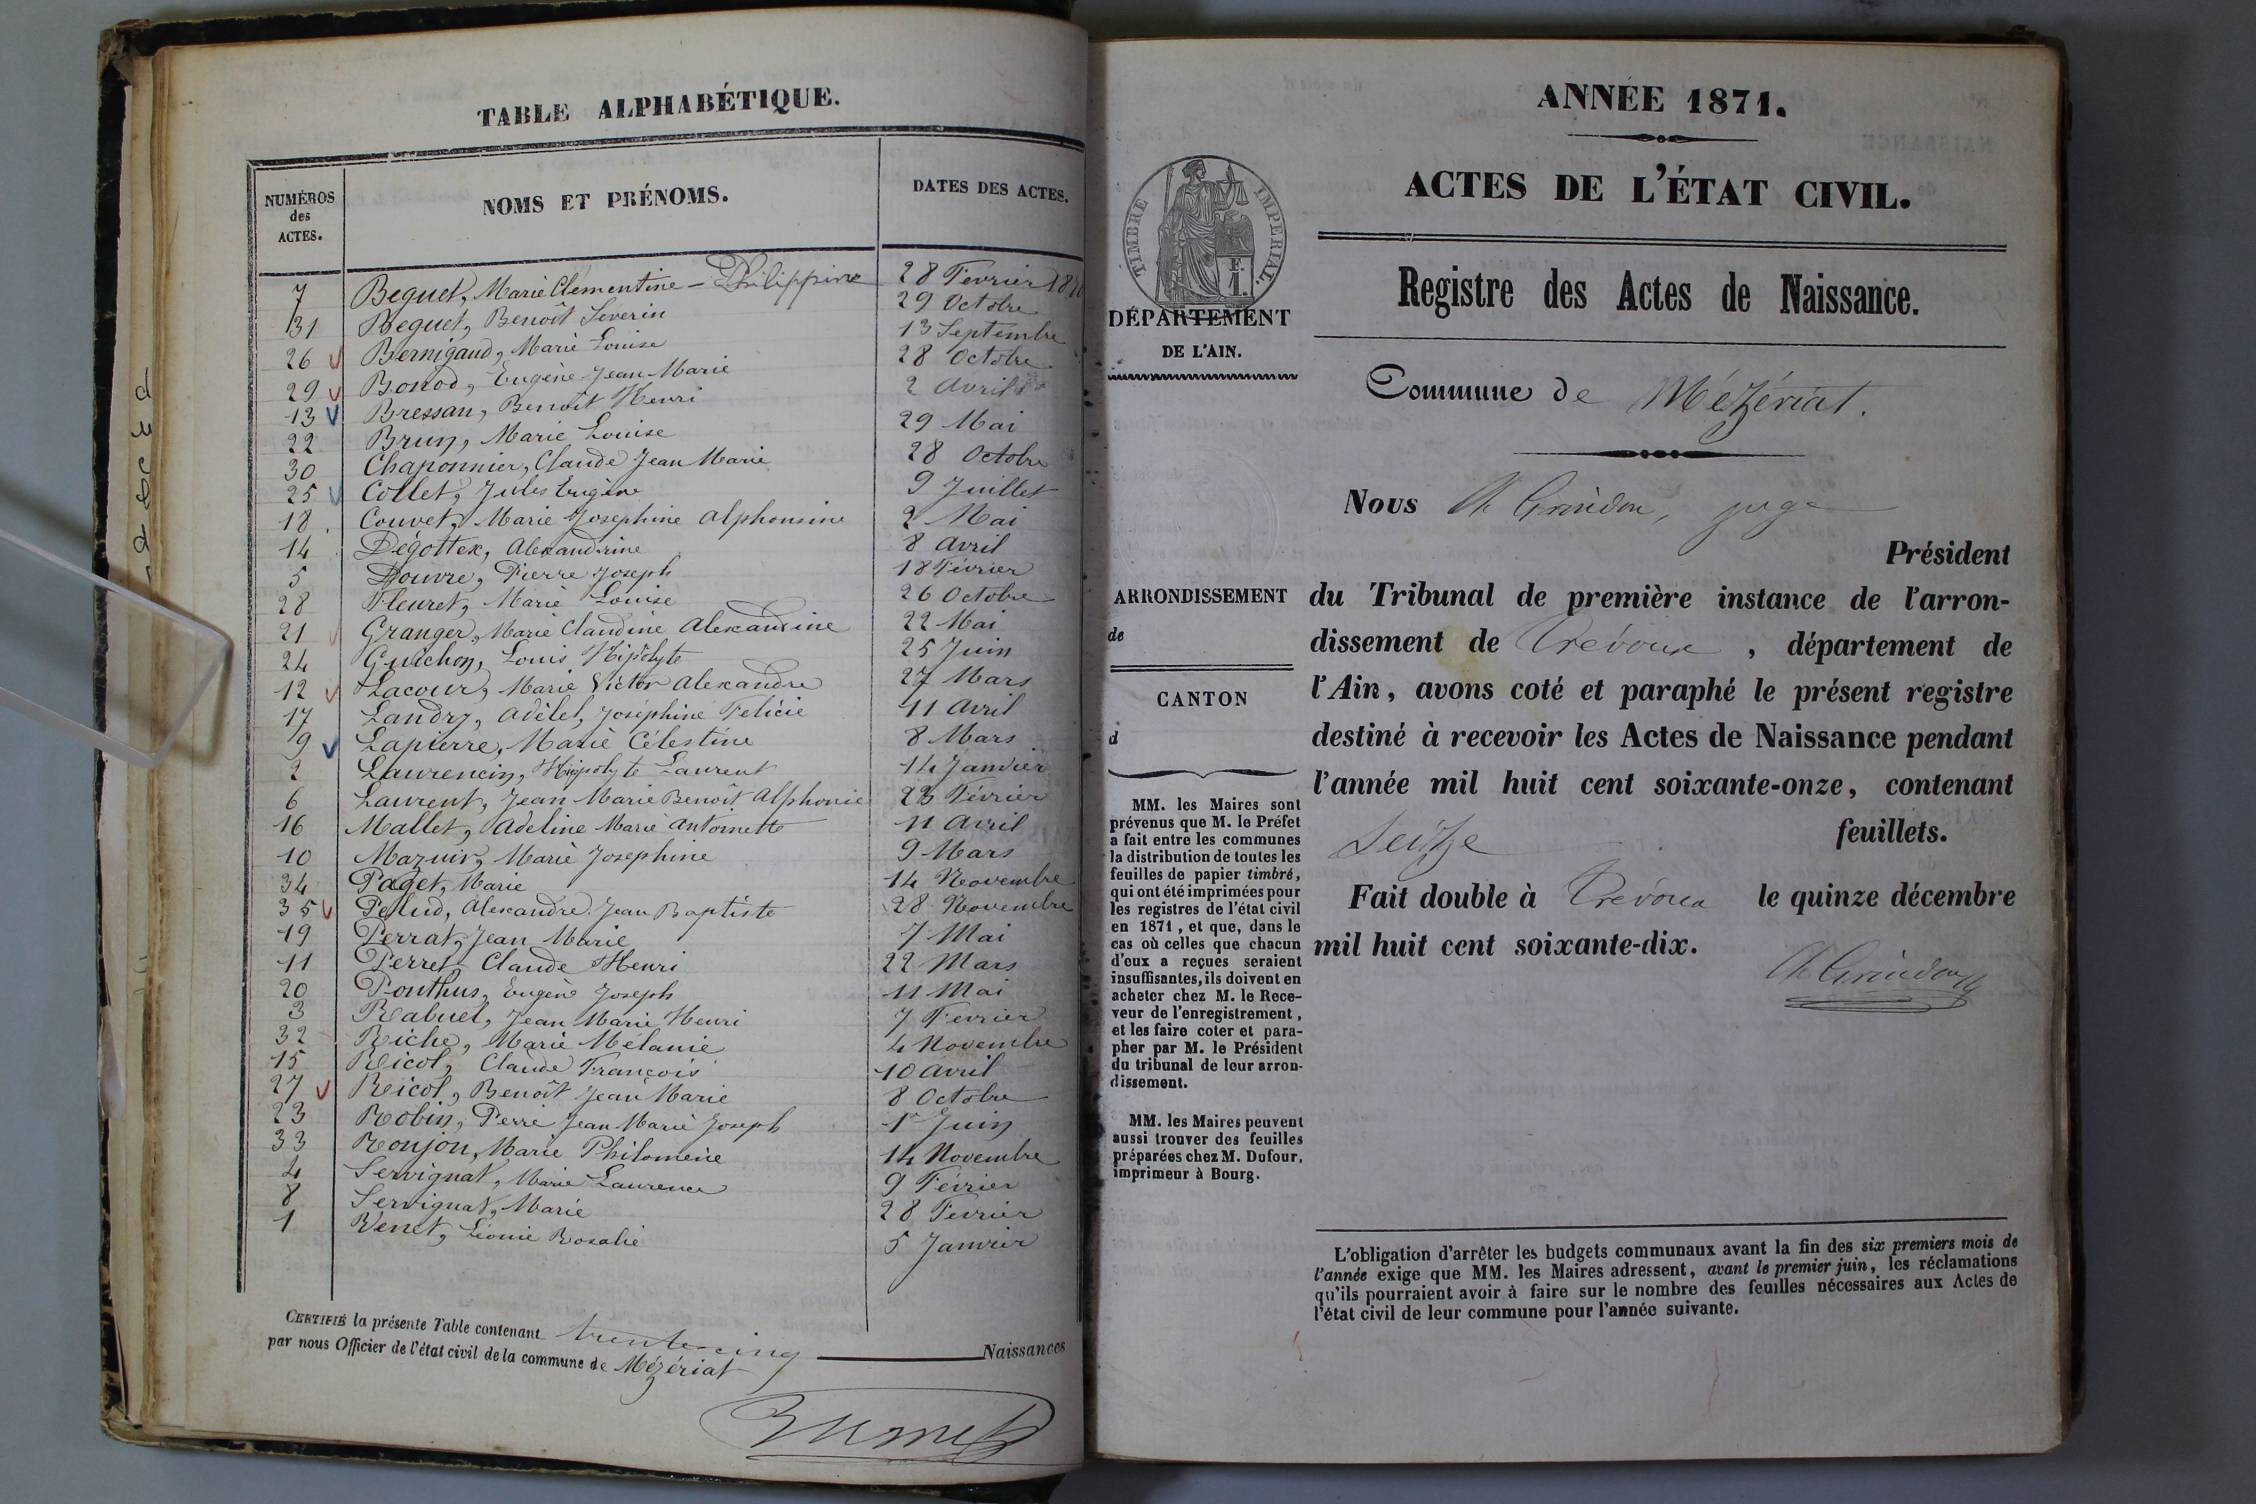 TABLE ALPHABÉTIQUE.
NUMÉROS des ACTES. NOMS ET PRÉNOMS. DATES DES ACTES.
7 Beguet, Marie Clémentine - Philippine 28 Fevrier
31 Beguet, Benoît Séverin 29 Octobre
26 Bernigaud, Marie Louise 13 Septembre
29 Bonod, Eugène Jean Marie 28 Octobre
13 Bressan, Benoît Henri 2 Avril
22 Brun, Marie Louise 29 Mai
30 Chaponnier, Claude Jean Marie 28 Octobre
25 Collet, Jules Eugène 9 Juillet
18 Couvet, Marie Josephine Alphonsine 2 Mai
14 Dégottex, Alexandrine 8 Avril
5 Douvre, Pierre Joseph 18 Février
28 Fleuret, Marie Louise 26 Octobre
21 Granger, Marie Claudine Alexandrine 22 Mai
24 Guichon, Louis Hipolyte 25 Juin
12 Lacour, Marie Victor Alexandre 27 Mars
17 Landry, Adèle, Joséphine Felicie 11 Avril
9 Lapierre, Marie Célestine 8 Mars
2 Laurencin, Hippolyte Laurent 14 Janvier
6 Laurent, Jean Marie Benoît Alphonse 23 Février
16 Mallet, Adeline Marie Antoinette 11 Avril
10 Mazuir, Marie Josephine 9 Mars
34 Paget, Marie 14 Novembre
35 Pelud, Alexandre Jean Baptiste 28 Novembre
19 Perrat, Jean Marie 7 Mai
11 Perret Claude Henri 22 Mars
20 Ponthus, Eugène Joseph 11 Mai
3 Rabuel, Jean Marie Henri 7 Fevrier
32 Riche, Marie Mélanie 4 Novembre
15 Ricol, Claude François 10 Avril
27 Ricol, Benoît Jean Marie 8 Octobre
23 Robin, Perre Jean Marie Joseph 1er Juin
33 Ronjon, Marie Philomène 14 Novembre
4 Servignat, Marie Laurence 9 Février
8 Servignat, Marie 28 Fevrier
1 Venet, Léonie Rosalie 5 Janvier
CERTIFIÉ la présente Table contenant trente-cinq Naissances
par nous Officier de l'état civil de la commune de Mézériat
ANNÉE 1871.
ACTES DE L'ÉTAT CIVIL.
Registre des Actes de Naissance.
TIMBRE IMPERIAL.
F.
1.
DÉPARTEMENT
DE L'AIN.
Commune de Mézériat.
Nous Ch Grindon, juge
Président
du Tribunal de première instance de l'arron-
dissement de Trévoux, département de
l'Ain, avons coté et paraphé le présent registre
destiné à recevoir les Actes de Naissance pendant
l'année mil huit cent soixante-onze, contenant
Seize feuillets.
Fait double à Trévoux le quinze décembre
mil huit cent soixante-dix.
Ch Grindon
ARRONDISSEMENT
de
CANTON
d
MM. les Maires sont
prévenus que M. le Préfet
a fait entre les communes
la distribution de toutes les
feuilles de papier timbré,
qui ont été imprimées pour
les registres de l'état civil
en 1871, et que, dans le
cas où celles que chacun
d'eux a reçues seraient
insuffisantes, ils doivent en
acheter chez M. le Rece-
veur de l'enregistrement,
et les faire coter et para-
pher par M. le Président
du tribunal de leur arron-
dissement.
MM. les Maires peuvent
aussi trouver des feuilles
préparées chez M. Dufour,
imprimeur à Bourg.
L'obligation d'arrêter les budgets communaux avant la fin des six premiers mois de
l'année exige que MM. les Maires adressent, avant le premier juin, les réclamations
qu'ils pourraient avoir à faire sur le nombre des feuilles nécessaires aux Actes de
l'état civil de leur commune pour l'année suivante.